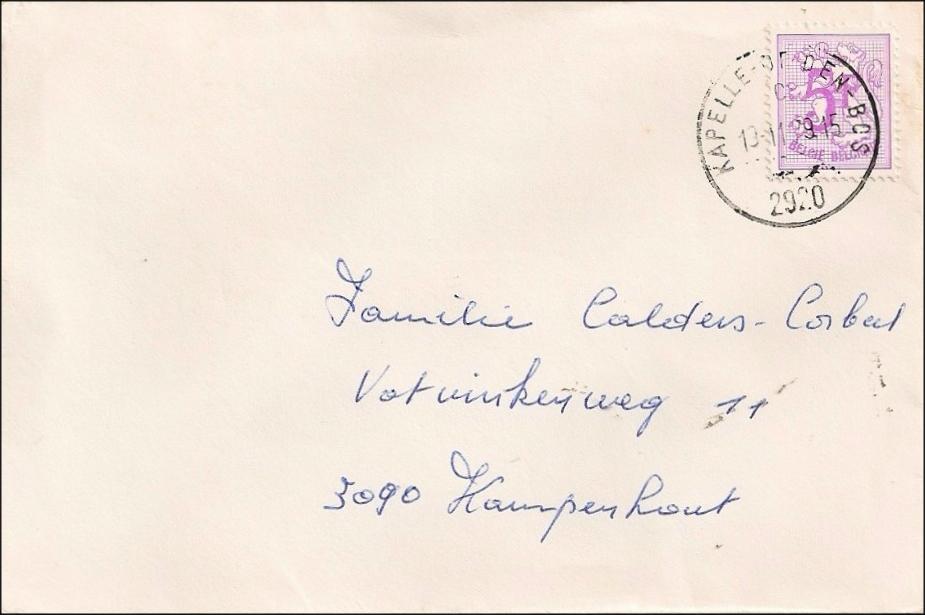 KAPELLE-OP-DEN-BOS
2920
5F
BELGIË BELGIQUE
Familie Calders-Corbeel
Votvinkenweg 11
3090 Kampenhout